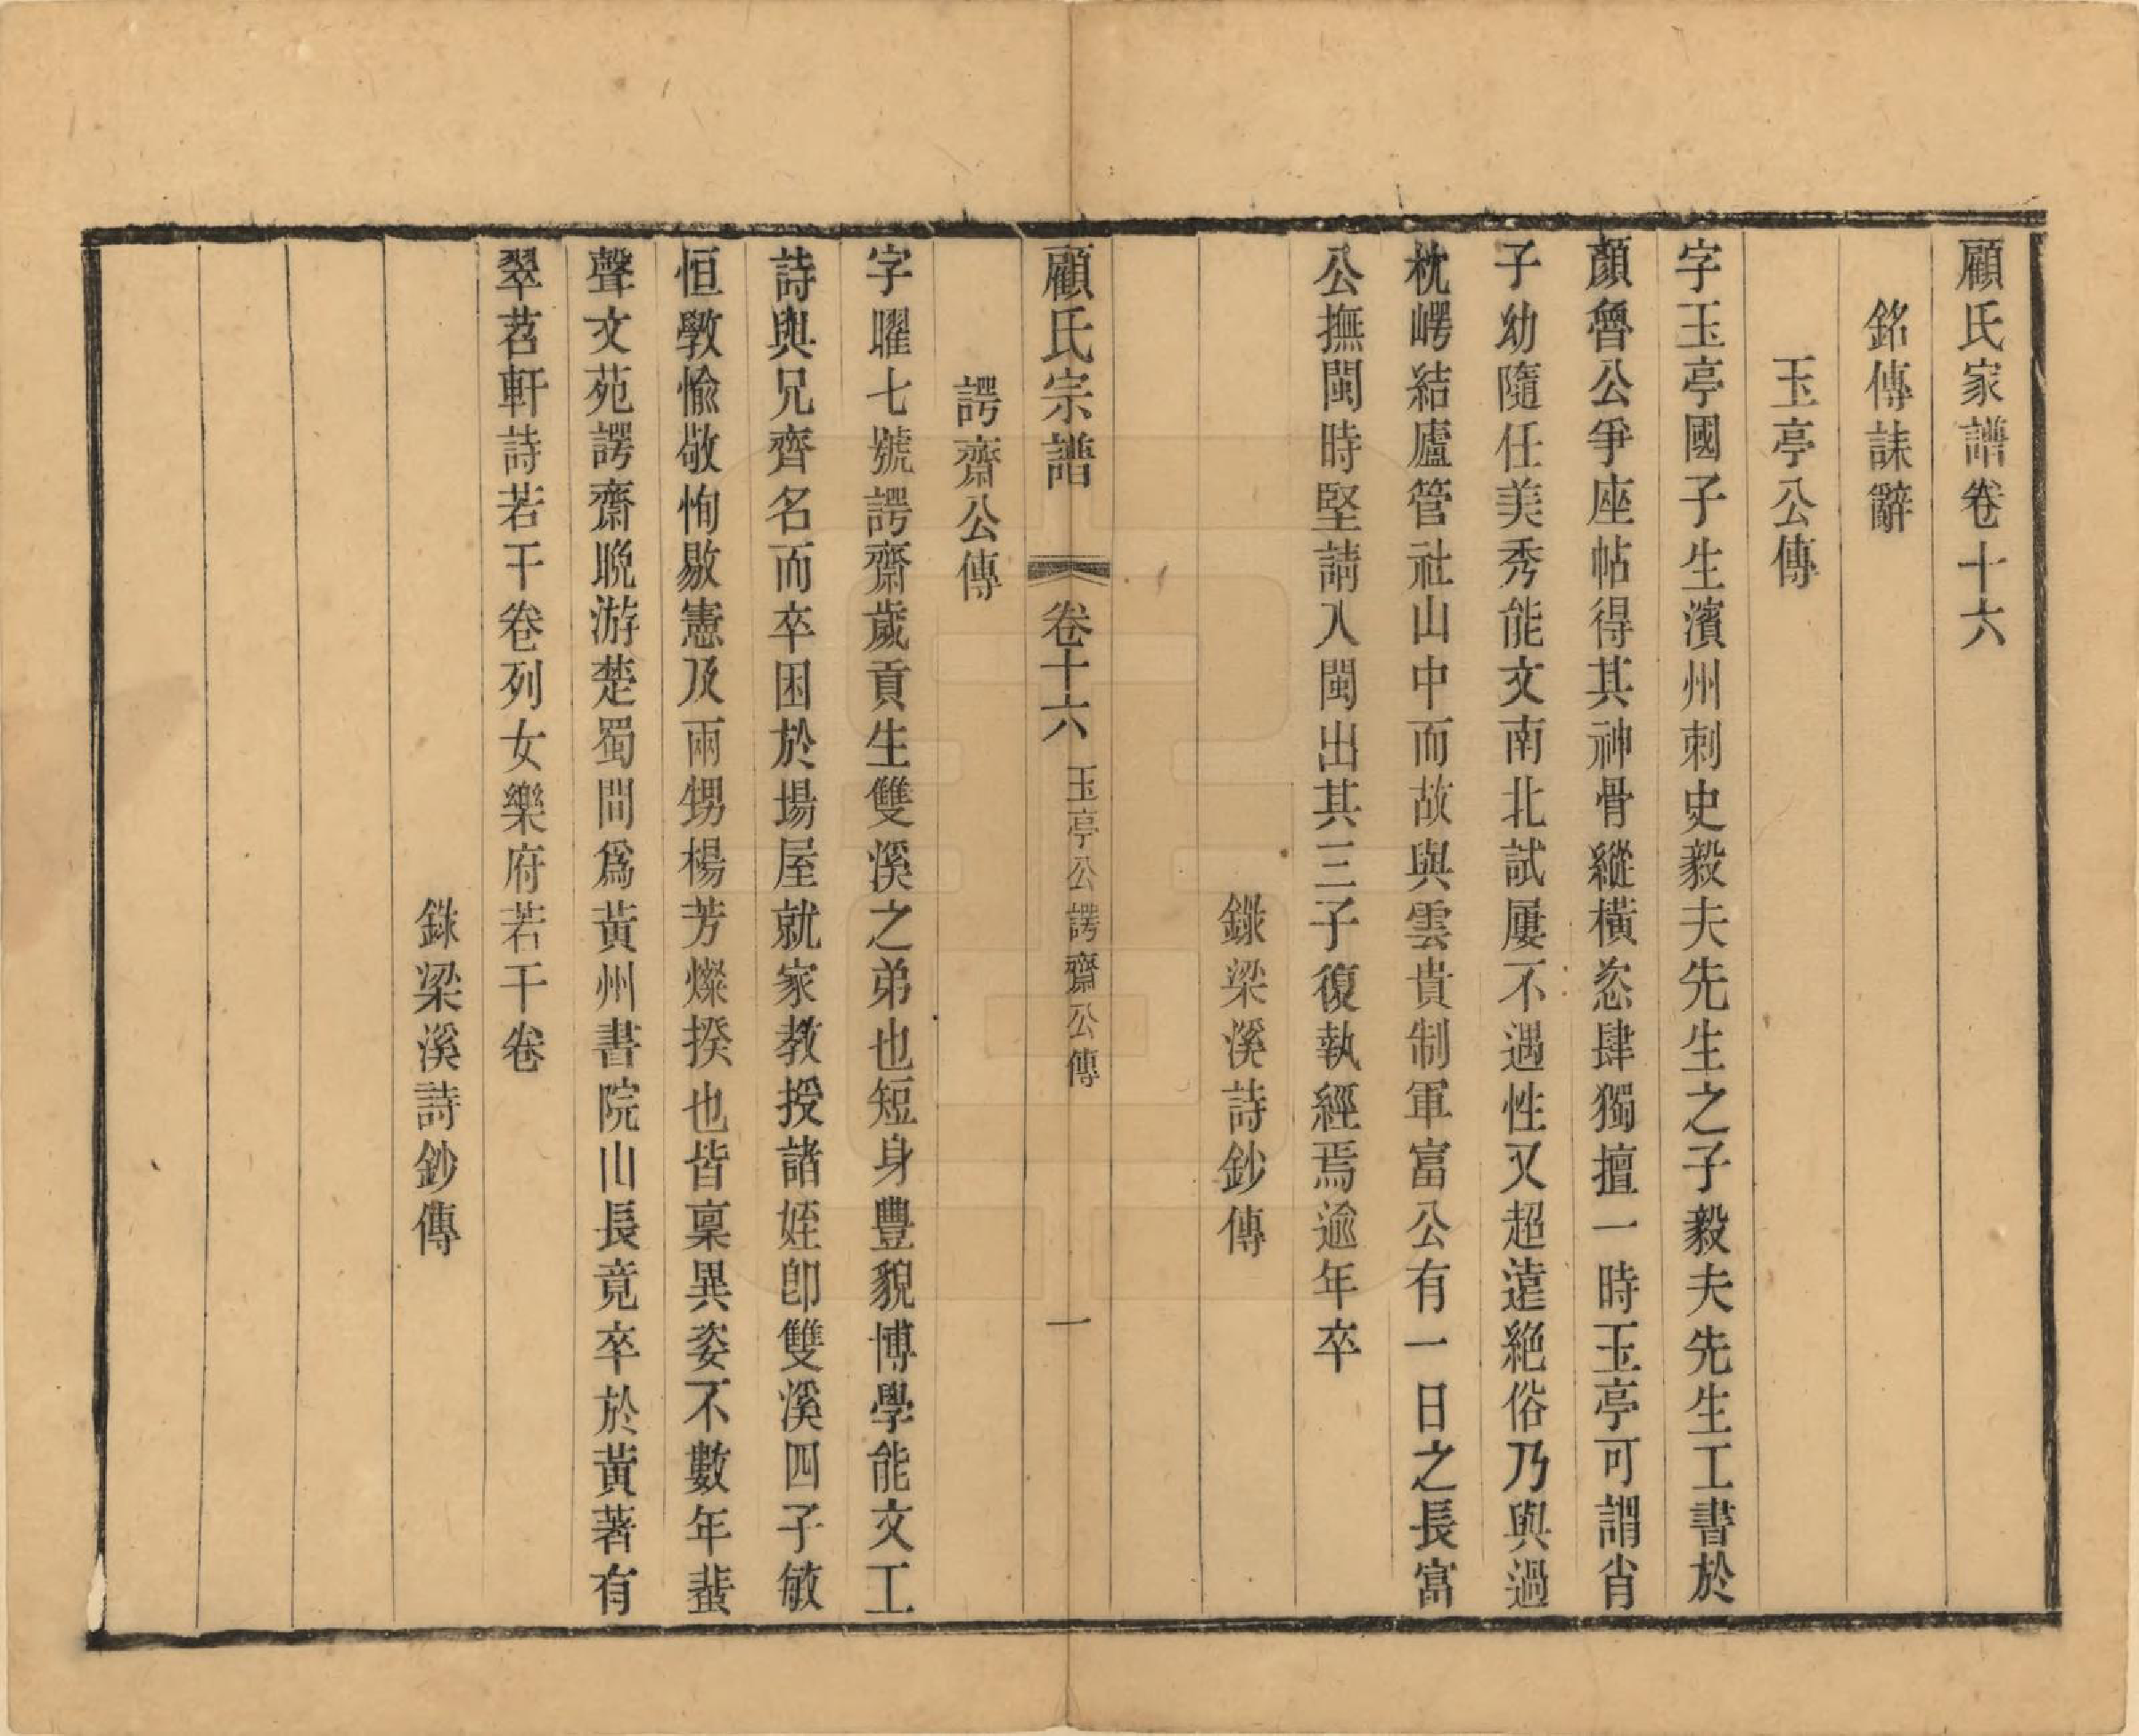 顧氏家譜卷十六
銘傳誄辭
玉亭公傳
字玉亭國子生濱州刺史毅夫先生之子毅夫先生工書於
顏魯公爭座帖得其神骨縱橫恣肆獨擅一時玉亭可謂肖
子幼隨任美秀能文南北試屢不遇性又超遠絶俗乃與過
枕崿結廬管社山中而故與雲貴制軍富公有一日之長富
公撫閩時堅請入閩出其三子復執經焉逾年卒
錄梁溪詩鈔傳
顧氏宗譜 卷十六 玉亭公諤齋公傳 一
諤齋公傳
字曜七號諤齋歲貢生雙溪之弟也短身豐貌博學能文工
詩與兄齊名而卒困於場屋就家教授諸姪卽雙溪四子敏
恒斆愉敬恂敭憲及兩甥楊芳燦揆也皆稟異姿不數年蜚
聲文苑諤齋晩游楚蜀間爲黃州書院山長竟卒於黃著有
翠苕軒詩若干卷列女樂府若干卷
錄梁溪詩鈔傳